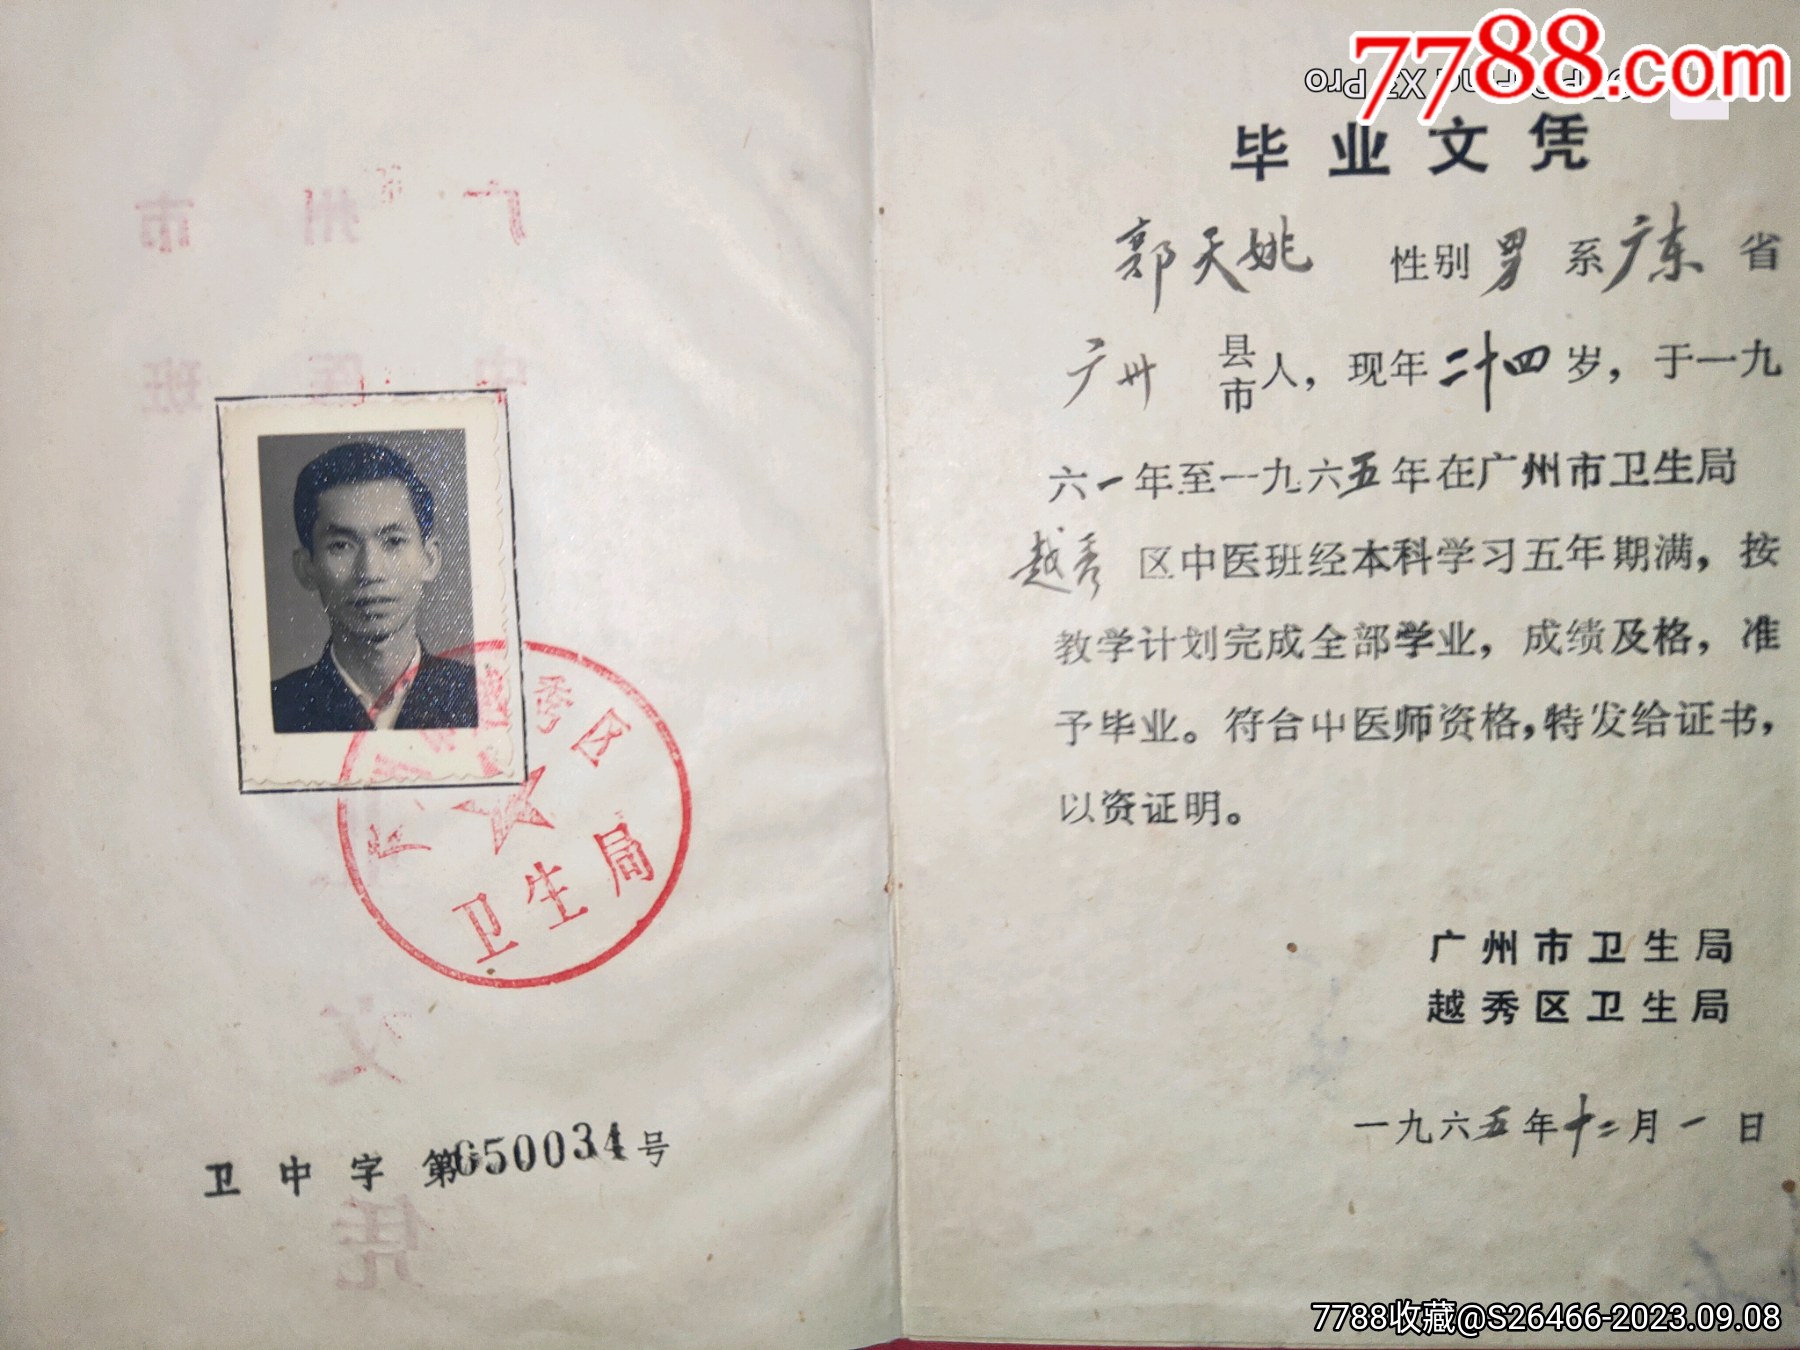 7788.com
毕业文凭
郭天姚 性别男 系广东省
广州 县市人，现年二十四岁，于一九
六一年至一九六五年在广州市卫生局
越秀区中医班经本科学习五年期满，按
教学计划完成全部学业，成绩及格，准
予毕业。符合中医师资格，特发给证书，
以资证明。
广州市卫生局
越秀区卫生局
一九六五年十二月一日
秀区
卫生局
卫中字第650034号
7788收藏@S26466-2023.09.08